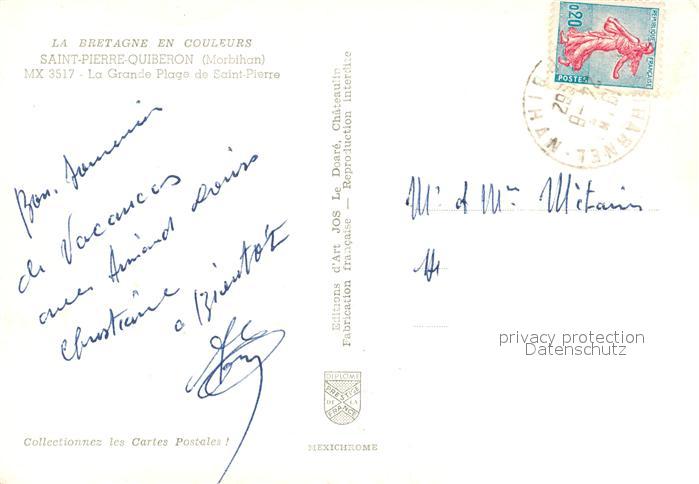 LA BRETAGNE EN COULEURS
SAINT-PIERRE-QUIBERON (Morbihan)
MX 3517 - La Grande Plage de Saint-Pierre
Bon Souvenir
de Vacances
avec Armand Louis
Christiane
a Bientôt
Collectionnez les Cartes Postales !
Editions d'Art JOS Le Doaré, Châteaulin
Fabrication française — Reproduction interdite
DIPLOME
PRESTIGE
DE LA
FRANCE
MEXICHROME
0,20
REPUBLIQUE FRANÇAISE
POSTES
1962
Mr & Mme Métairie
privacy protection
Datenschutz